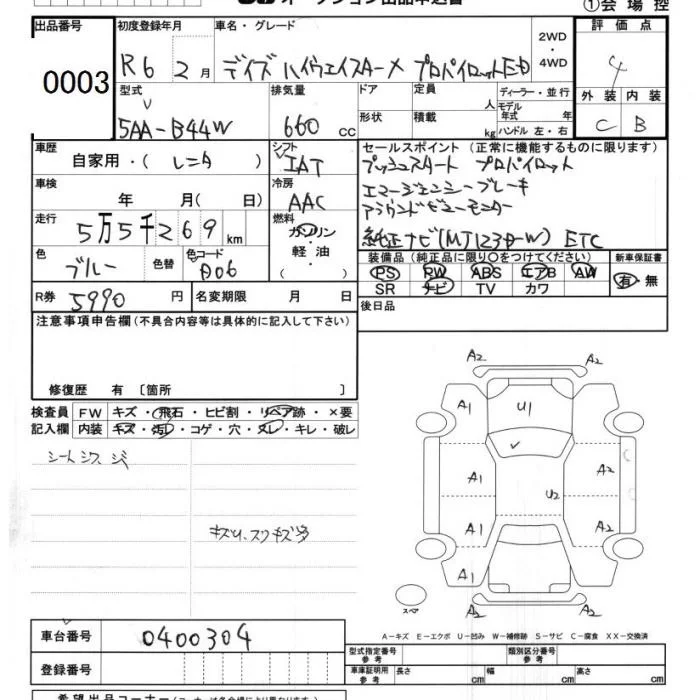 オークション出品申込書
①会場控
出品番号 0003
初度登録年月 R6 2月
車名・グレード デイズ ハイウェイスターX プロパイロットED
2WD・4WD
評価点 4
外装 C 内装 B
型式 5AA-B44W
排気量 660 cc
ドア 形状
定員 人
積載 kg
ディーラー・並行
モデル年式 年
ハンドル 左・右
車歴 自家用・( レンタ )
シフト IAT
セールスポイント (正常に機能するものに限ります)
プッシュスタート プロパイロット
エマージェンシーブレーキ
アラウンドビューモニター
純正ナビ(MJ123D-W) ETC
車検 年 月( 日)
冷房 AAC
走行 5万5千269km
燃料 ガソリン・軽油・( )
色 ブルー 色替
色コード
装備品 (純正品に限り○をつけてください)
PS PW ABS エアB AW
SR ナビ TV カワ
新車保証書 有・無
R券 5990円
名変期限 月 日
後日品
注意事項申告欄(不具合内容等は具体的に記入して下さい)
修復歴 有 [箇所 ]
検査員記入欄
FW キズ・飛石・ヒビ割・リペア跡・×要
内装 キズ・汚れ・コゲ・穴・スレ・キレ・破レ
キズU、スリキズ多
A2 A2
A1 U1 A1
A1 A2
U2
A1 A2
A1
A2
スペア
A-キズ E-エクボ U-凹み W-補修跡 S-サビ C-腐食 XX-交換済
車台番号 0400304
登録番号
型式指定番号 参考
類別区分番号 参考
車庫証明用 参考 長さ cm 幅 cm 高さ cm
希望出品コーナー